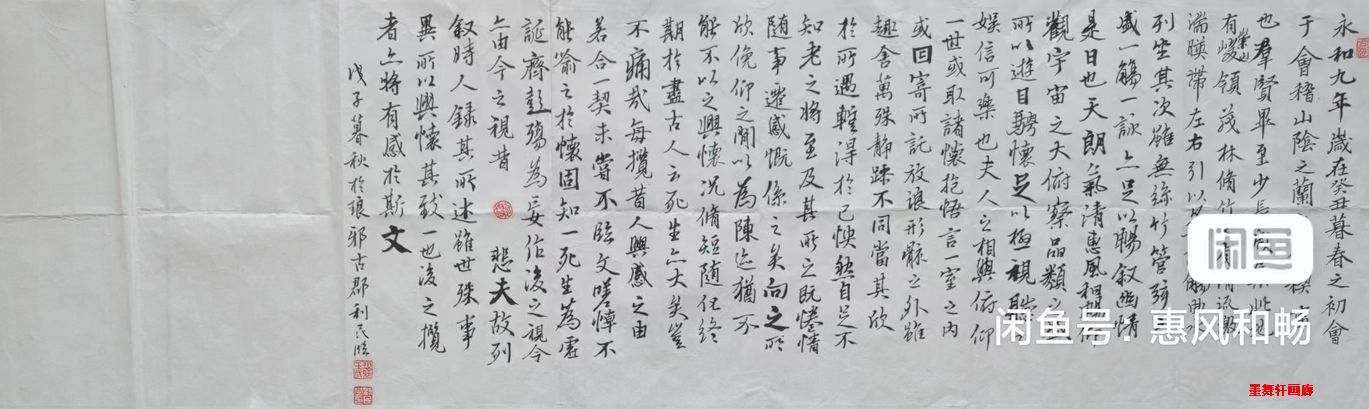 永和九年歲在癸丑暮春之初會
于會稽山陰之蘭
也羣賢畢至少長
有崇山峻領茂林脩竹
湍暎帶左右引以
列坐其次雖無絲竹管弦
盛一觴一詠亦足以暢叙幽情
是日也天朗氣清惠風和暢仰
觀宇宙之大俯察品類之
所以遊目騁懷足以極視聽
娛信可樂也夫人之相與俯仰
一世或取諸懷抱悟言一室之內
或因寄所託放浪形骸之外雖
趣舍萬殊静躁不同當其欣
於所遇輕得於己怏然自足不
知老之將至及其所之既惓情
随事遷感慨係之矣向之所
欣俛仰之閒以為陳迹猶不
能不以之興懷況脩短随化終
期於盡古人云死生亦大矣豈
不痛哉每攬昔人興感之由
若合一契未嘗不臨文嗟悼不
能喻之於懷固知一死生為虛
誕齊彭殤為妄作後之視今
亦由今之視昔 悲夫故列
叙時人録其所述雖世殊事
異所以興懷其致一也後之攬
者亦將有感於斯文
戊子暮秋於琅邪古郡利民臨
闲鱼
闲鱼号：惠风和畅
墨舞轩画廊